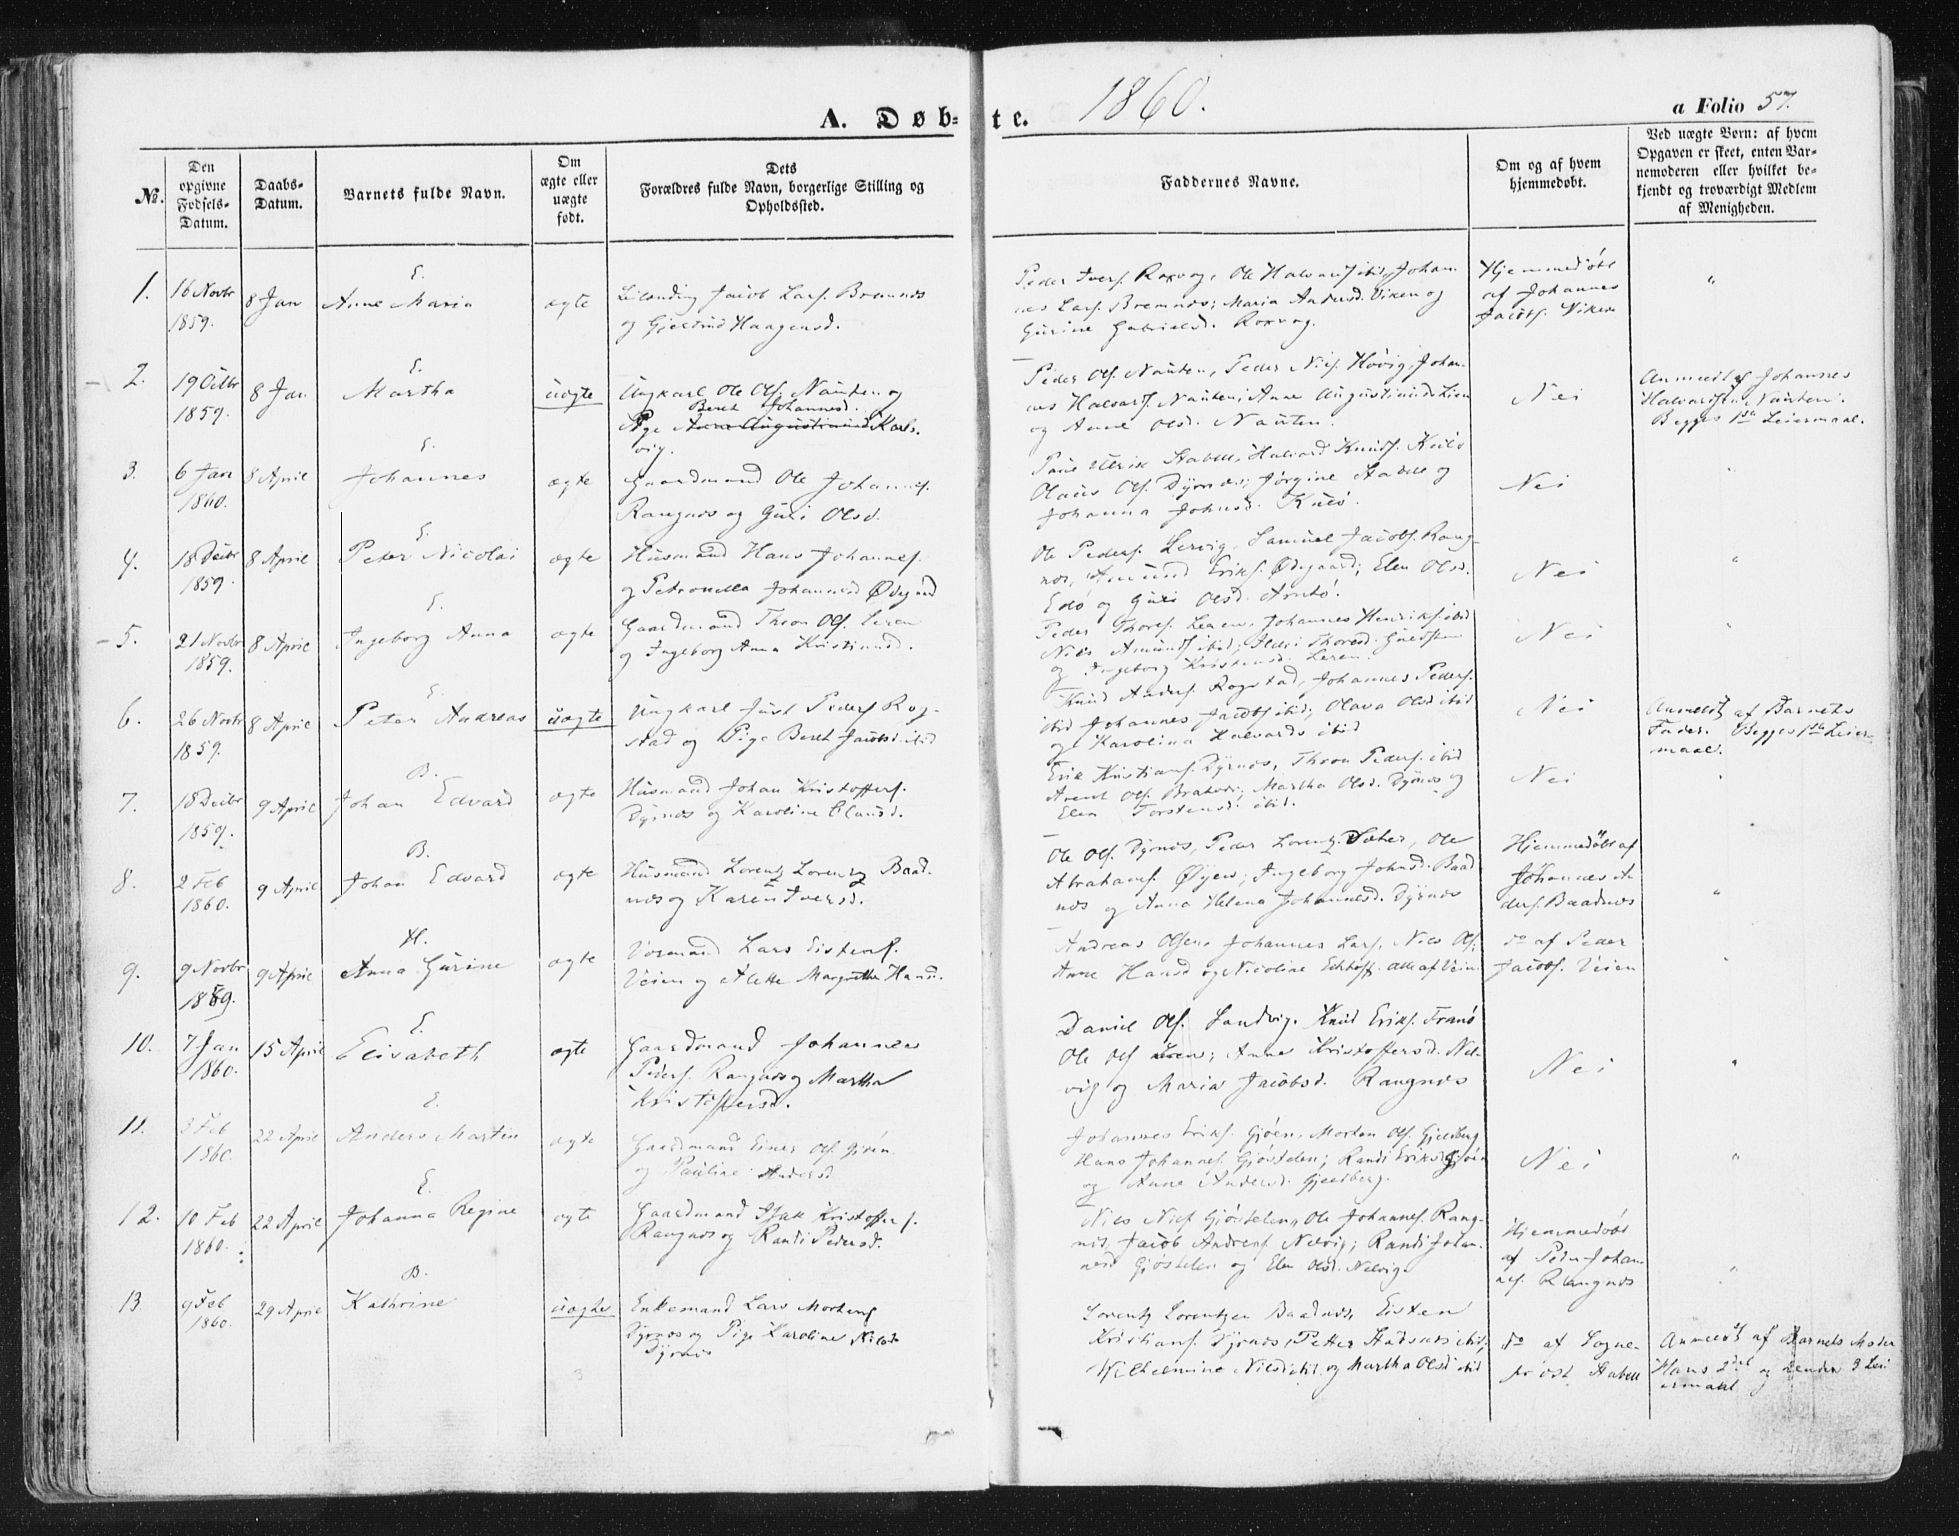 A. Døb-te. 1860.
a Folio 57.
№.
Den opgivne Fødsels-Datum.
Daabs-Datum.
Barnets fulde Navn.
Om ægte eller uægte født.
Dets Forældres fulde Navn, borgerlige Stilling og Opholdssted.
Faddernes Navne.
Om og af hvem hjemmedøbt.
Ved uægte Børn: af hvem Opgaven er skeet, enten Barnemoderen eller hvilket bekjendt og troværdigt Medlem af Menigheden.
1. 16 Novbr 1859. 8 Jan
E.
Anne Maria
ægte
Jacob Lars. Bremnes
og Gjertrud Haagensd.
Peder Ivers. Roxvog, Ole Halvors. ibid, Johan-
nes Lars. Bremnes; Maria Andersd. Viken og
Gurine Gabrielsd. Roxvog.
Hjemmedøbt
af Johannes
Jacobs. Viken
"
2. 19 Octbr 1859. 8 Jan
E.
Martha
uægte
Ungkarl Ole Ols. Nauten og
Beret Johannesd.
Pige Anne Augustinusd Karls-
vig.
Peder Ols. Nauten, Peder Nils. Høvig, Johan-
nes Halvors. Nauten; Anne Augustinusd. Lien
og Anne Olsd. Nauten.
Nei
Anmeldt af Johannes
Halvorsen Nauten.
Begges 1ste Leiermaal.
3. 6 Jan 1860. 8 April
E.
Johannes
ægte
Gaardmand Ole Johannes.
Rangnes og Guri Olsd.
Paul Ulrik Stabell, Halvard Knuds. Kulø
Olaus Ols. Dyrnes; Jørgine Stabell og
Johanna Johnsd. Kulø.
Nei
"
4. 18 Decbr 1859. 8 April
E.
Peter Nicolai
ægte
Husmand Hans Johannes.
og Petronella Johannesd Ødegaard
Ole Peders. Lervig, Samuel Jacobs. Rang-
nes, Amund Eriks. Ødegaard; Elen Olsd.
Edø og Guri Olsd. Arntø.
Nei
"
5. 21 Novbr 1859. 8 April
E.
Ingeborg Anna
ægte
Gaardmand Thron Ols. Leren
og Ingeborg Anna Kristiansd.
Peder Thores. Leren, Johannes Henriks. ibid
Nils Amunds. ibid; Thoresd.
og Ingeborg Kristensd. Leren.
Nei
"
6. 26 Novbr 1859. 8 April
E.
Peter Andreas
uægte
Ungkarl Just Peders Rog-
stad og Pige Beret Jacobsd. ibid
Knud Anders. Rogstad, Johannes Peders.
ibid Johannes Jacobs. ibid; Olava Olsd ibid
og Karolina Halvards ibid
Nei
Anmeldt af Barnets
Fader. Begges 1ste Leier-
maal.
7. 18 Decbr 1859. 9 April
B.
Johan Edvard
ægte
Husmand Johan Kristoffers.
Dyrnes og Karoline Olausd.
Erik Kristians. Dyrnes, Thron Peders. ibid
Arent Ols. ; Martha Olsd. Dyrnes og
Elen Torstensd. ibid.
Nei
"
8. 2 Feb 1860. 9 April
B.
Johan Edvard
ægte
Husmand Lorents Lorents Baad-
nes og Karen Iversd.
Ole Ols. Dyrnes, Peder Lorents. Sæter, Ole
Abrahams. Øyen; Ingeborg Johnsd. Baad-
nes og Anna Helena Johannesd. Dyrnes
Hjemmedøbt af
Johannes An-
ders. Baadnes
"
9. 9 Novbr 1859. 9 April
H.
Anna Gurine
ægte
Lars Eistens.
Veien og Alette Margrethe Hansd.
Andreas Olsen, Johannes Lars, Nils Ols.
Anne Hansd og Nicoline Eckhoff. alle af Veien
do af Peder
Jacobs. Veien
"
10. 7 Jan 1860. 15 April
E.
Elisabeth
ægte
Gaardmand Johannes
Peders. Rangnes og Martha
Kristoffersd.
Daniel Ols. Sandvig. Knud Eriks.
Ole Ols Leren; Anne Kristoffersd. Nel-
vig og Maria Jacobsd. Rangnes
Nei
"
11. 2 Feb 1860. 22 April
E.
Anders Martin
ægte
Gaardmand Einer Ols. Gjøen
og Pauline Andersd
Johannes Eriks. Gjøen, Morten Ols. Gjeldberg
Hans Johannes. Gjøstelen; Randi Eriksd Gjøen
og Anne Andersd. Gjeldberg.
Nei
"
12. 10 Feb 1860. 22 April
E.
Johanna Regine
ægte
Gaardmand Isak Kristoffers.
Rangnes og Randi Pedersd.
Nils Nils Gjøstelen, Ole Johannes. Rang-
nes, Jacob Andreas. Nelvig; Randi Johan-
nesd Gjøstelen og Elen Olsd. Nelvig
Hjemmedøbt
af Peder Johan-
nes. Rangnes
"
13. 9 Feb 1860. 29 April
B.
Kathrine
uægte
Enkemand Lars Mortens
Dyrnes og Pige Karoline Nilsd
Dyrnes
Lorents Lorentzen Baadnes, Eisten
Kristians. Dyrnes, Petter ibid;
Wilhelmine Nilsd ibid. og Martha Olsd ibid
do af Sogne-
prost Stabell
Anmeldt af Barnets Moder
Hans 2det og hendes 3 Lei-
ermaal
3